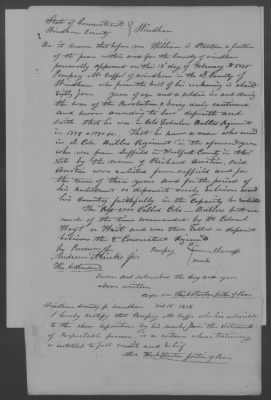 State of Connecticut } Windham
Windham County
Be it known that before me William C. Stratton a justice
of the peace within and for the County of windham
personally appeared on this 15 day of February AD 1845
Pompey Mc Cuff of windham in the County of
Windham who from the best of his reckoning is about
eighty years of age and a soldier in and during
the war of the Revolution & being duly cautioned
and sworn according to law deposeth and
saith that he was in Col Zebulon Butlers Regiment
in 1779 & 1780 &c. That he knew a man who served
in Col. Butlers Regiment in the aforesaid years
who was from Suffield in Hartford County in this
State by the name of Prichard Austin, said
Austin was enlisted from Suffield and for
the term of three years and for the period of
his enlistment as deponent verily believes served
his Country faithfully in the Capacity of
The Regt was Called Col Butlers but was
much of the time commanded by Lt Colonel
Hoyt or Hait and was then Called as deponent
believes the 2d Connecticut Regiment
In presence of Pompey his McCuff
mark
Sworn and subscribed the day and year
above written
before me Justice of Peace
Windham County ss. Windham Feb 15 1845
I hereby certify that Pompey Mc Cuff who has subscribed
to the above deposition by his mark, from the statements
of respectable persons, is a witness whose testimony
is entitled to full credit and belief
Justice of Peace